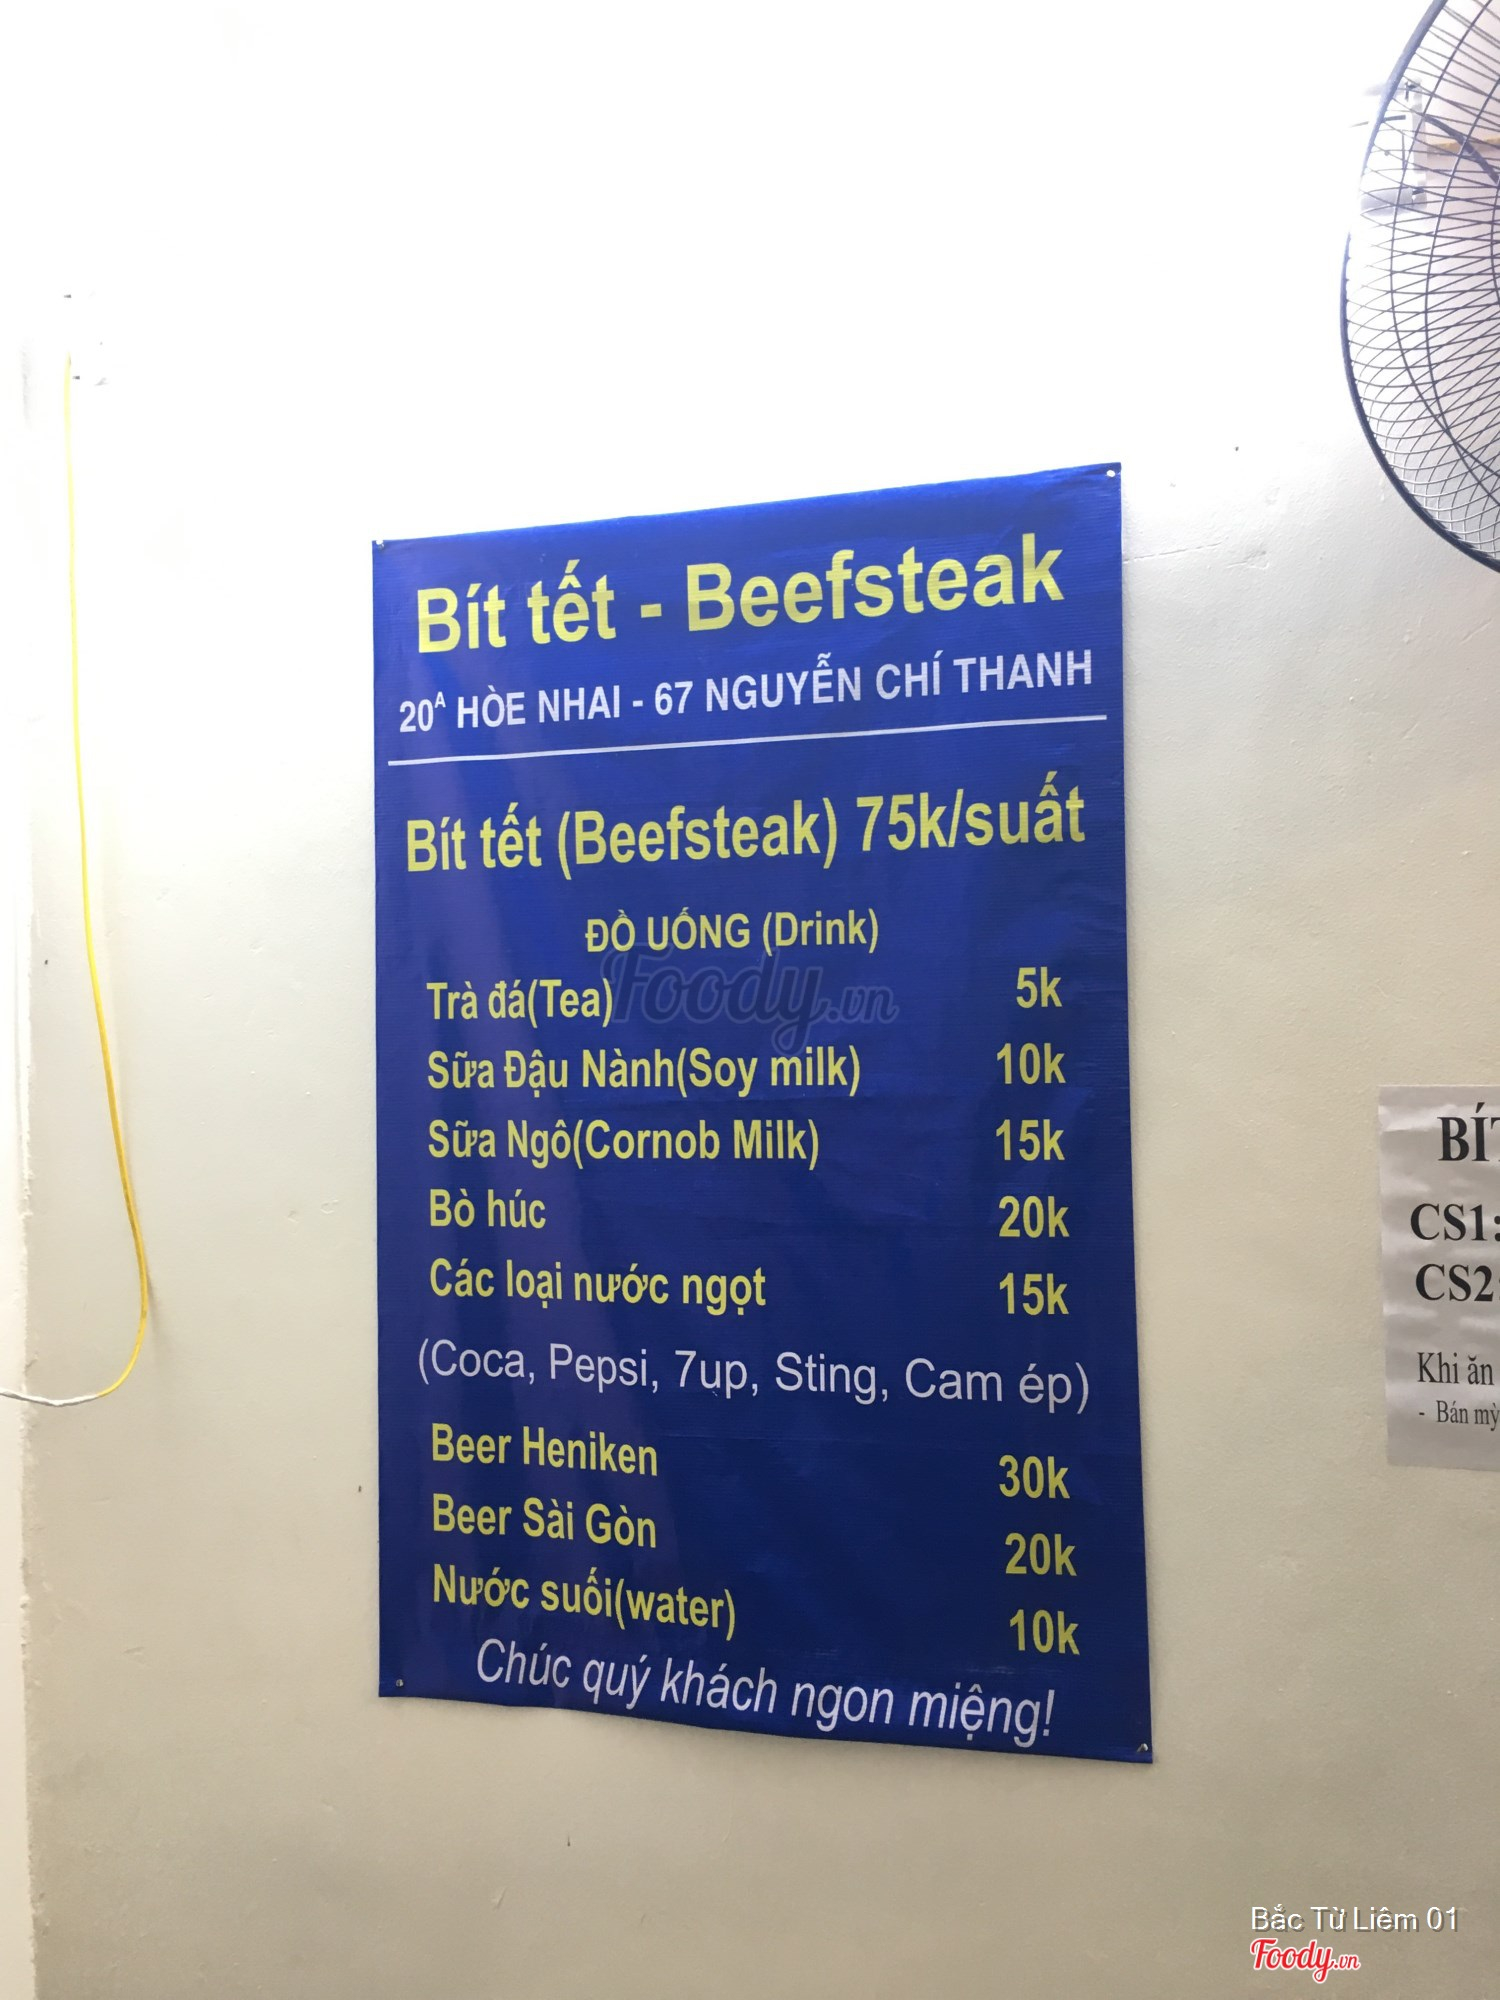 Bít tết - Beefsteak
20A HÒE NHAI - 67 NGUYỄN CHÍ THANH
Bít tết (Beefsteak) 75k/suất
ĐỒ UỐNG (Drink)
Foody.vn
Trà đá(Tea) 5k
Sữa Đậu Nành(Soy milk) 10k
Sữa Ngô(Cornob Milk) 15k
Bò húc 20k
Các loại nước ngọt 15k
(Coca, Pepsi, 7up, Sting, Cam ép)
Beer Heniken 30k
Beer Sài Gòn 20k
Nước suối(water) 10k
Chúc quý khách ngon miệng!
CS1:
CS2:
Khi ăn
- Bán mỳ
Bắc Từ Liêm 01
Foody.vn